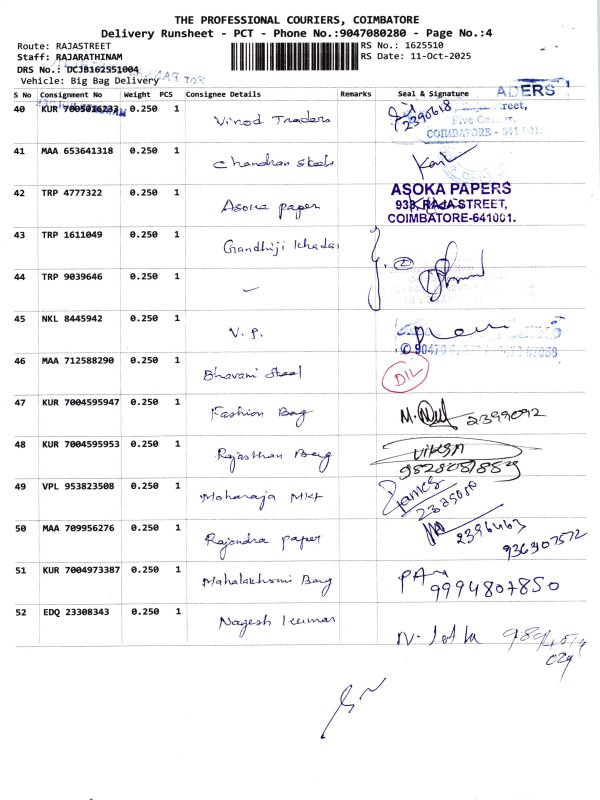 THE PROFESSIONAL COURIERS, COIMBATORE
Delivery Runsheet - PCT - Phone No.:9047080280 - Page No.:4
Route: RAJASTREET
RS No.: 1625510
Staff: RAJARATHINAM
RS Date: 11-Oct-2025
DRS No.: DCJB162551004
Vehicle: Big Bag Delivery
S No Consignment No Weight PCS Consignee Details Remarks Seal & Signature
ADERS
40 KUR 7005016233 0.250 1 Vinod Traders 2390618
Street,
Five Corner,
COIMBATORE - 641 001.
41 MAA 653641318 0.250 1 Chandran Steels
42 TRP 4777322 0.250 1 Asoka paper
ASOKA PAPERS
938, RAJA STREET,
COIMBATORE-641001.
43 TRP 1611049 0.250 1 Gandhiji Khadai
44 TRP 9039646 0.250 1 2
45 NKL 8445942 0.250 1 V. P.
46 MAA 712588290 0.250 1 Bhavani Steel DIL
47 KUR 7004595947 0.250 1 Fashion Bag 2399092
48 KUR 7004595953 0.250 1 Rajasthan Bag
49 VPL 953823508 0.250 1 Maharaja Mkt James
50 MAA 709956276 0.250 1 Rajendra paper 2396463
51 KUR 7004973387 0.250 1 Mahalakhomi Bang 9994807850
52 EDQ 23308343 0.250 1 Nagesh kumar